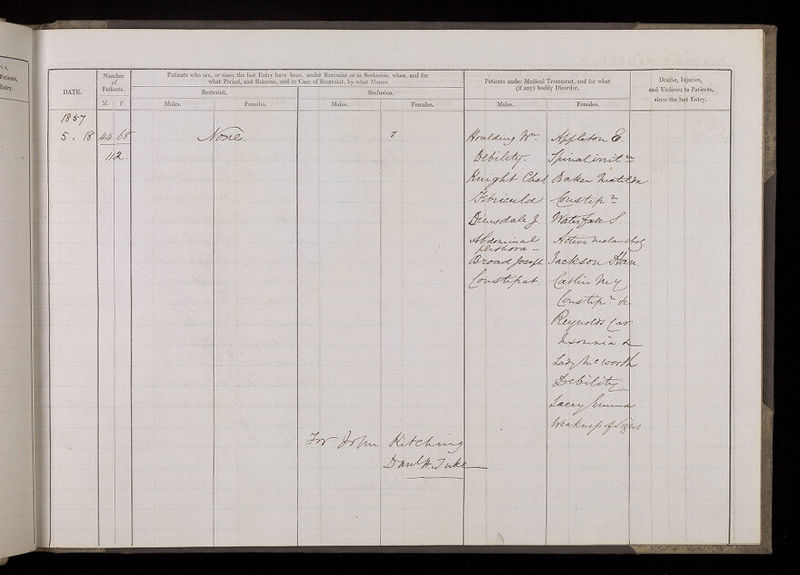 DATE.
Number
of
Patients.
M. F.
Patients who are, or since the last Entry have been, under Restraint or in Seclusion, when, and for
what Period, and Reasons, and in Case of Restraint, by what Means.
Restraint. Seclusion.
Males. Females. Males. Females.
Patients under Medical Treatment, and for what
(if any) bodily Disorder.
Males. Females.
Deaths, Injuries,
and Violence to Patients,
since the last Entry.
Patients,
Entry.
1857
5. 18 44 68 None. Houlding Wm. Appleton E.
112 Debility. Spinal irritn
Knight Chas Baker Matilda
Febricula Constipn
Dimsdale J. Waterfall S
Abdominal Active Melanchol
plethora
Broad Joseph Jackson Han.
Constipat Catlin My
Constipn &c
Reynolds Car
Insomnia &c
Lady
Debility
Lacey Emma
Weakness of
For John Kitching
Danl H. Tuke